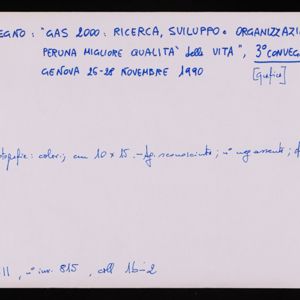 EGNO: "GAS 2000: RICERCA, SVILUPPO e ORGANIZZAZI
PER UNA MIGLIORE QUALITA' della VITA", 3° CONVEG
GENOVA 26-28 NOVEMBRE 1990 [grafica]
tografie: colori; cm 10 x 15. - fg. sconosciuto; n° neg. assente;
11, n° inv. 815, coll 1b-2